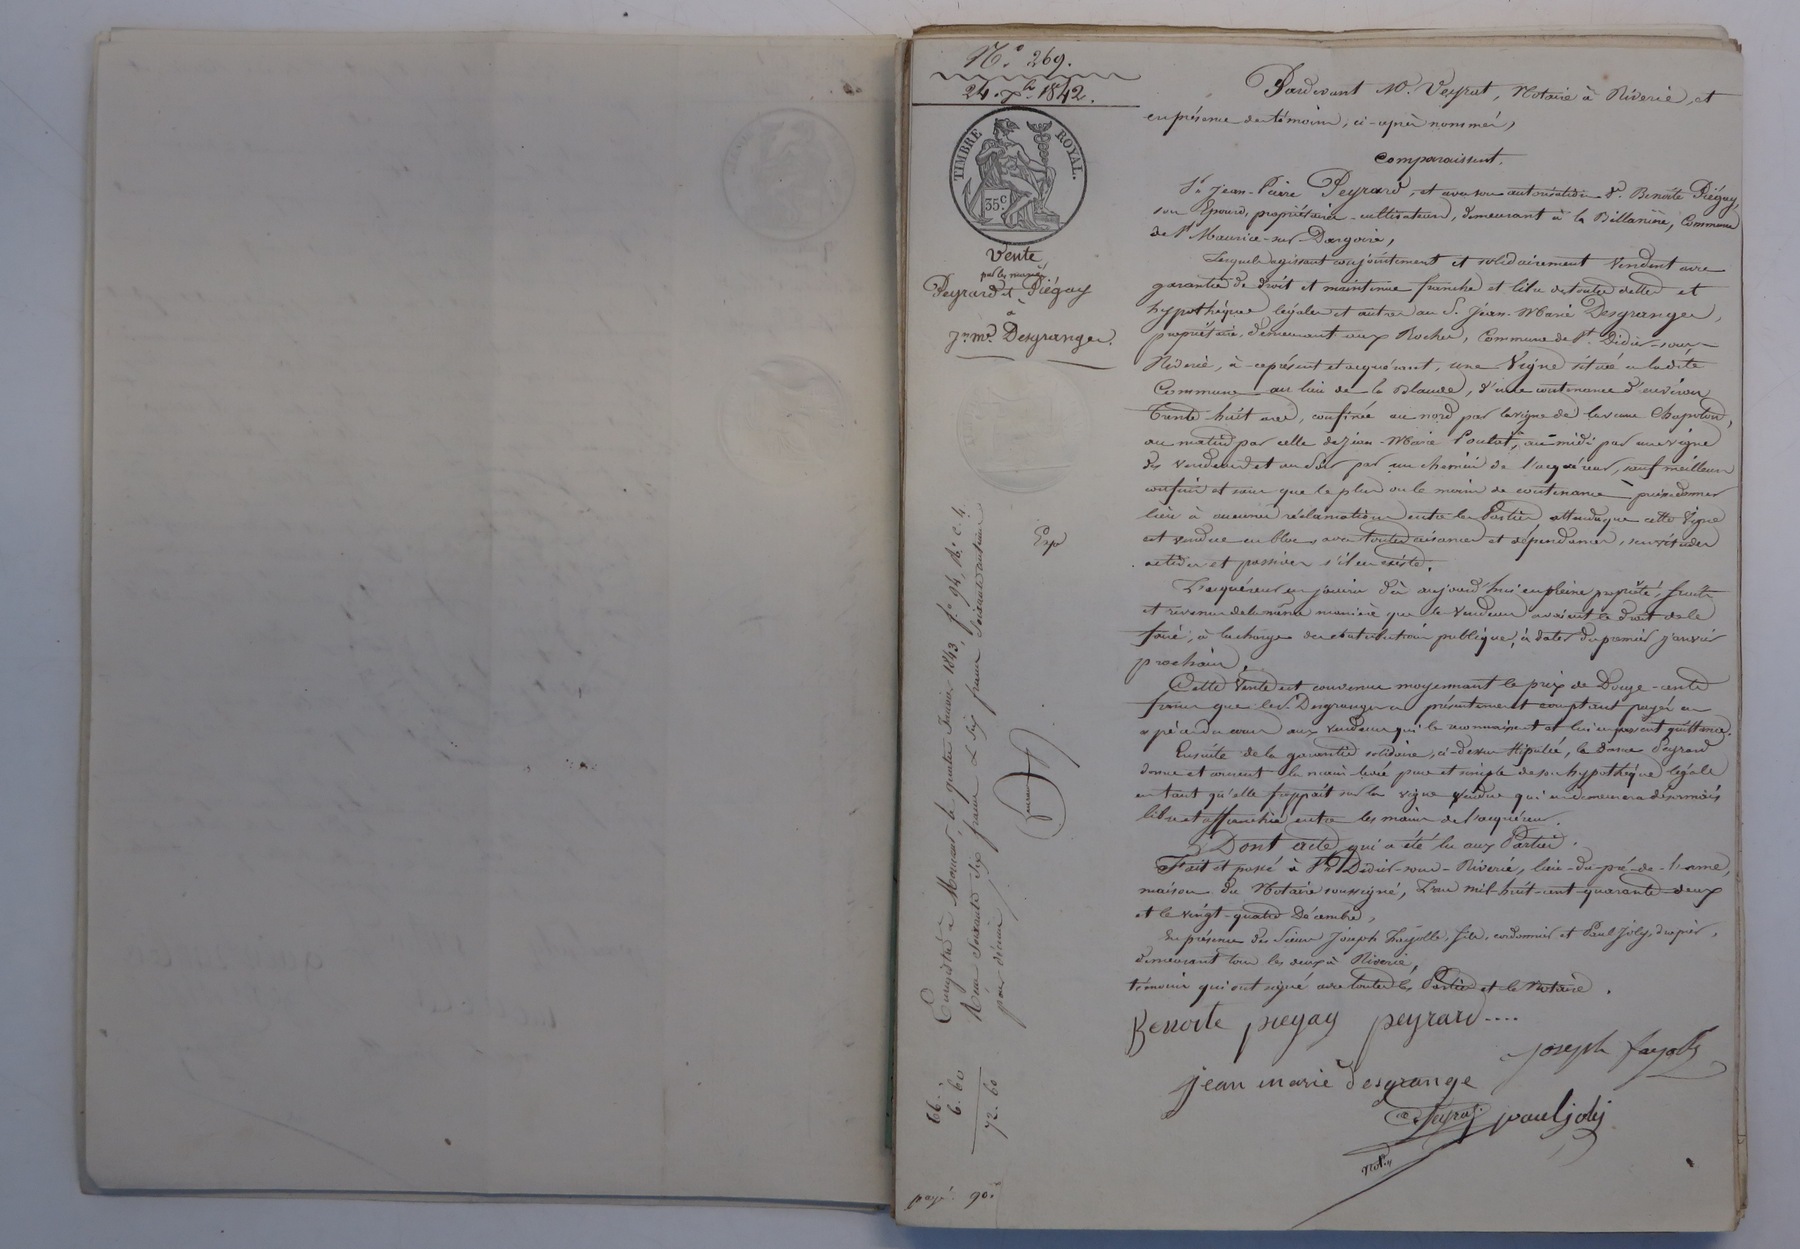 N.° 269.
24. Xbre 1842.
TIMBRE ROYAL.
35 c.
Vente
par les mariés
Peyrard & Piégay
à
Jn. Mie. Desgranges.
Exp
Enregistré à Mornant, le quatre Janvier 1843, f.° 94, R.° c. 4.
Reçu soixante six francs & six francs soixante centimes
pour décime
66. "
6. 60
72. 60
payé 90.
Pardevant Me. Veyrat, Notaire à Riverie, et
en présence des témoins, ci-après nommés,
Comparaissent.
Sr. Jean-Pierre Peyrard, et avec son autorisation De. Benoîte Piégay,
son Epouse, propriétaires-cultivateurs, demeurant à la Billanière, Commune
de St. Maurice-sur Dargoire,
Lesquels agissant conjointement et solidairement Vendent avec
garantie de droit et maintenue franche et libre de toutes dettes et
hypothèques légales et autres au Sr. Jean-Marie Desgranges,
propriétaire, demeurant aux Roches, Commune de St. Didier-sous-
Riverie, à ce présent et acquérant, une Vigne située en ladite
Commune au lieu de la Blaude, d'une contenance d'environ
Trente huit ares, confinée au nord par la vigne de la veuve Chapoton,
au matin par celle de Jean-Marie Poulat, au midi par une vigne
des Vendeurs et au Soir par un chemin de l'acquéreur, sauf meilleurs
confins et sans que le plus ou le moins de contenance puisse donner
lieu à aucunes réclamations entre les Parties attendu que cette Vigne
est vendue en bloc, avec toutes aisances et dépendances, servitudes
actives et passives s'il en existe.
L'acquéreur en jouira dès aujourd'hui en pleine propriété, fruits
et revenus de la même manière que les Vendeurs avaient le droit de le
faire, à la charge des contributions publiques, à dater du premier Janvier
prochain.
Cette Vente est convenue moyennant le prix de Douze-cents
francs que le Sr. Desgranges a présentement comptant payés en
espèces de cours aux Vendeurs qui le reconnaissent et lui en passent quittance.
Ensuite de la garantie solidaire, ci-dessus stipulée, la Dame Peyrard
donne et consent la main levée pure et simple de son hypothèque légale
en tant qu'elle frappait sur la vigne vendue qui en demeurera désormais
libre et affranchie entre les mains de l'acquéreur.
Dont acte, qui a été lu aux Parties.
Fait et passé à St. Didier-sous-Riverie, lieu-du-pré-de-
maison du Notaire soussigné, L'an mil-huit-cent-quarante-deux
et le vingt-quatre Décembre,
En présence des Sieurs Joseph Fayolle, fils, cordonnier et Paul Joly, drapier,
demeurant tous les deux à Riverie,
témoins qui ont signé avec toutes les Parties et le Notaire.
Benoite piegay peyrard....
joseph fayolle
jean marie desgrange
Veyrat paul joly
not.re